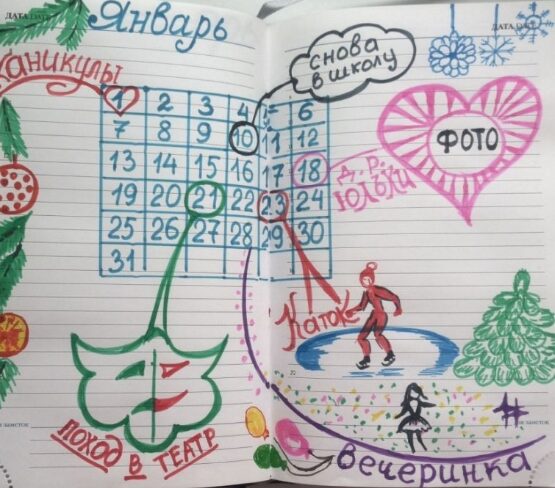 ДАТА DATE
Январь
каникулы
снова
в школу
1 2 3 4 5 6
7 8 9 10 11 12
13 14 15 16 17 18
19 20 21 22 23 24
25 26 27 28 29 30
31
д.р.
Юльки
ФОТО
Каток
ПОХОД В ТЕАТР
вечеринка